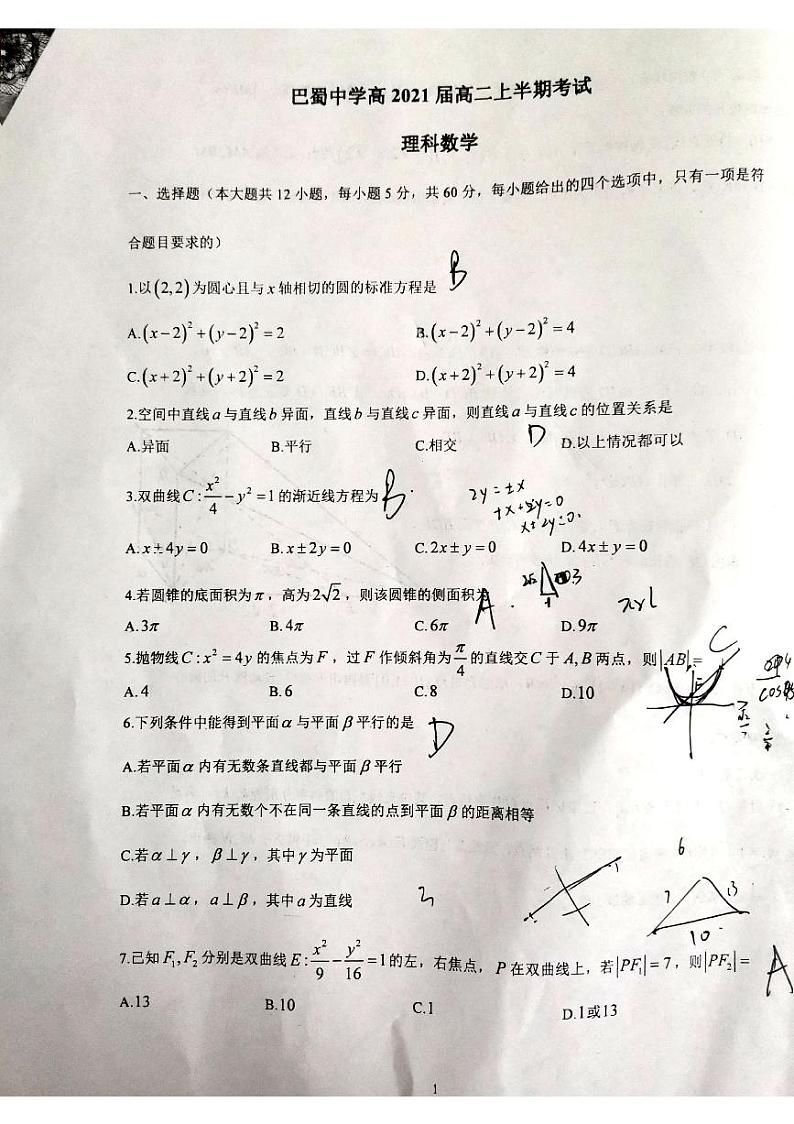 巴蜀中学高 2021 届高二上半期考试
理科数学
一、选择题（本大题共 12 小题，每小题 5 分，共 60 分，每小题给出的四个选项中，只有一项是符
合题目要求的）
1.以(2,2)为圆心且与 x 轴相切的圆的标准方程是 B
A.(x−2)²+(y−2)²=2 B.(x−2)²+(y−2)²=4
C.(x+2)²+(y+2)²=2 D.(x+2)²+(y+2)²=4
2.空间中直线 a 与直线 b 异面，直线 b 与直线 c 异面，则直线 a 与直线 c 的位置关系是
A.异面 B.平行 C.相交 D D.以上情况都可以
3.双曲线 C:x²/4−y²=1 的渐近线方程为 B
2y=±x
x±2y=0.
A.x±4y=0 B.x±2y=0 C.2x±y=0 D.4x±y=0
4.若圆锥的底面积为π，高为2√2，则该圆锥的侧面积为 A
πrl
A.3π B.4π C.6π D.9π
5.抛物线 C:x²=4y 的焦点为 F，过 F 作倾斜角为 π/4 的直线交 C 于 A,B 两点，则|AB|= C
A.4 B.6 C.8 D.10
6.下列条件中能得到平面α与平面β平行的是 D
A.若平面α内有无数条直线都与平面β平行
B.若平面α内有无数个不在同一条直线的点到平面β的距离相等
C.若α⊥γ，β⊥γ，其中γ为平面
D.若a⊥α，a⊥β，其中a为直线
6
7 13
10
7.已知 F₁,F₂ 分别是双曲线 E:x²/9−y²/16=1 的左，右焦点，P 在双曲线上，若|PF₁|=7，则|PF₂|= A
A.13 B.10 C.1 D.1或13
1